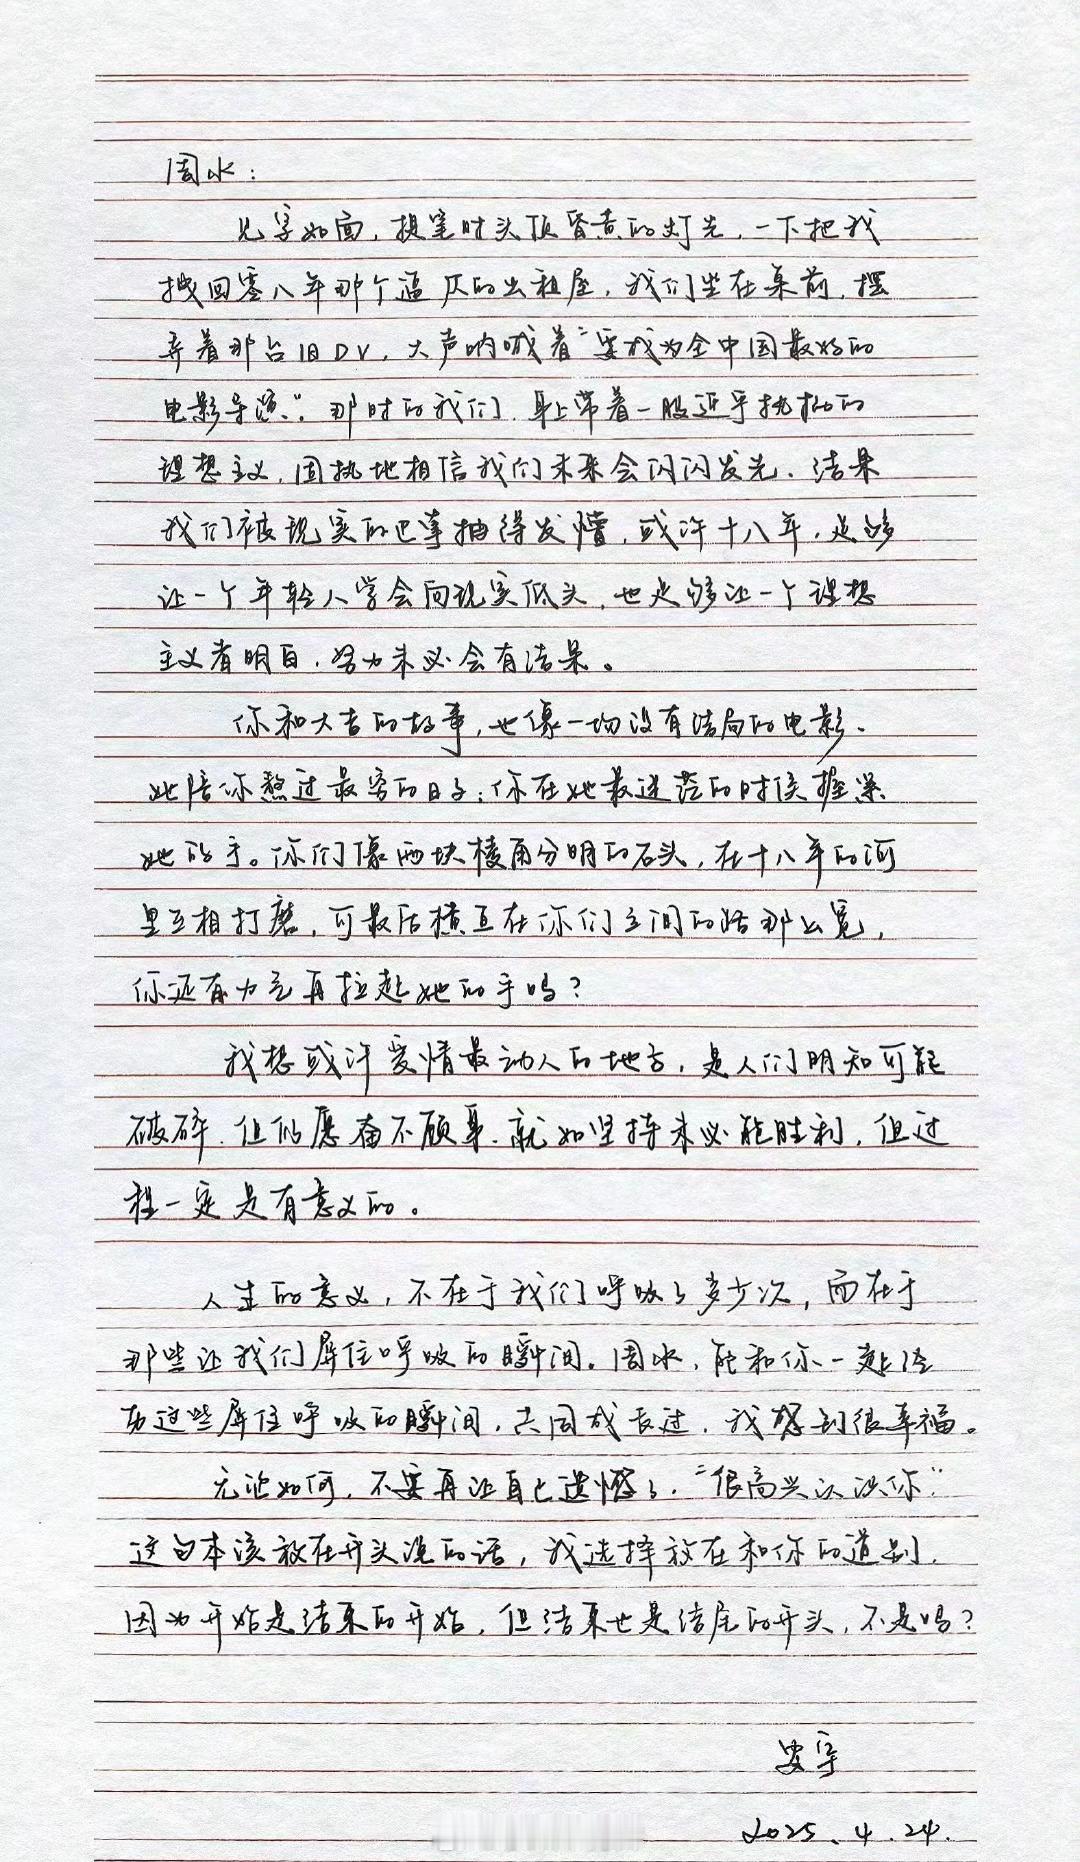 周水：
见字如面，提笔时头顶昏黄的灯光，一下把我
拽回零八年那个逼仄的出租屋，我们坐在桌前，摆
弄着那台旧DV，大声呐喊着“要成为全中国最好的
电影导演”。那时的我们，身上带着一股近乎执拗的
理想主义，固执地相信我们未来会闪闪发光，结果
我们被现实的巴掌抽得发懵，或许十八年，足够
让一个年轻人学会向现实低头，也足够让一个理想
主义者明白，努力未必会有结果。
你和大吉的故事，也像一场没有结局的电影，
她陪你熬过最穷的日子；你在她最迷茫的时候握紧
她的手。你们像两块棱角分明的石头，在十八年的河
里互相打磨，可最后横亘在你们之间的路那么宽，
你还有力气再拉起她的手吗？
我想或许爱情最动人的地方，是人们明知可能
破碎，但仍愿奋不顾身，就如坚持未必能胜利，但过
程一定是有意义的。
人生的意义，不在于我们呼吸了多少次，而在于
那些让我们屏住呼吸的瞬间。周水，能和你一起经
历过这些屏住呼吸的瞬间，共同成长过，我感到很幸福。
无论如何，不要再让自己遗憾了，“很高兴认识你”
这句本该放在开头说的话，我选择放在和你的道别，
因为开始是结束的开始，但结束也是结尾的开头，不是吗？
安宇
2025.4.24.